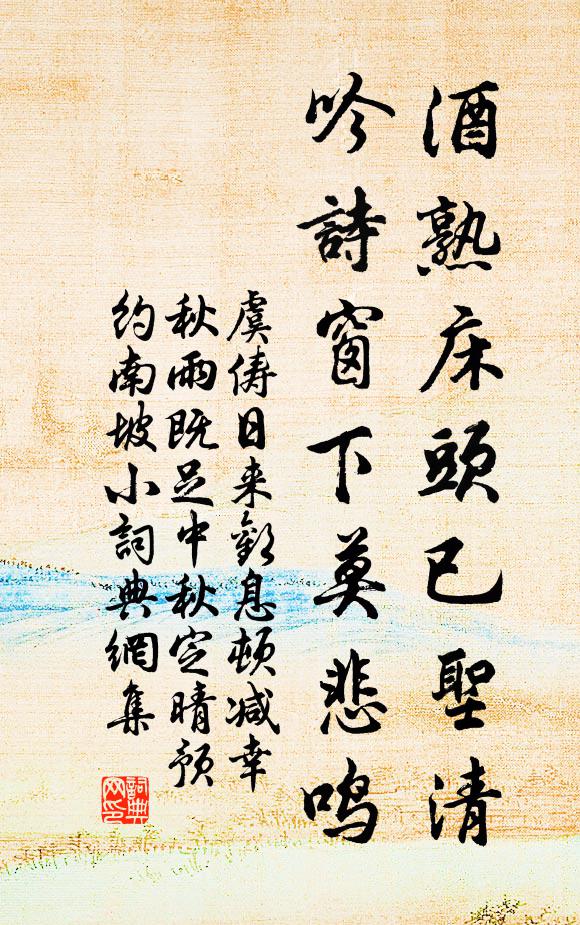 酒熟床頭已聖清
吟詩窗下莫悲鸣
虞俦日来歎息頓减幸
秋雨既足中秋定晴预
约南坡小詞典網集
詞典
网印